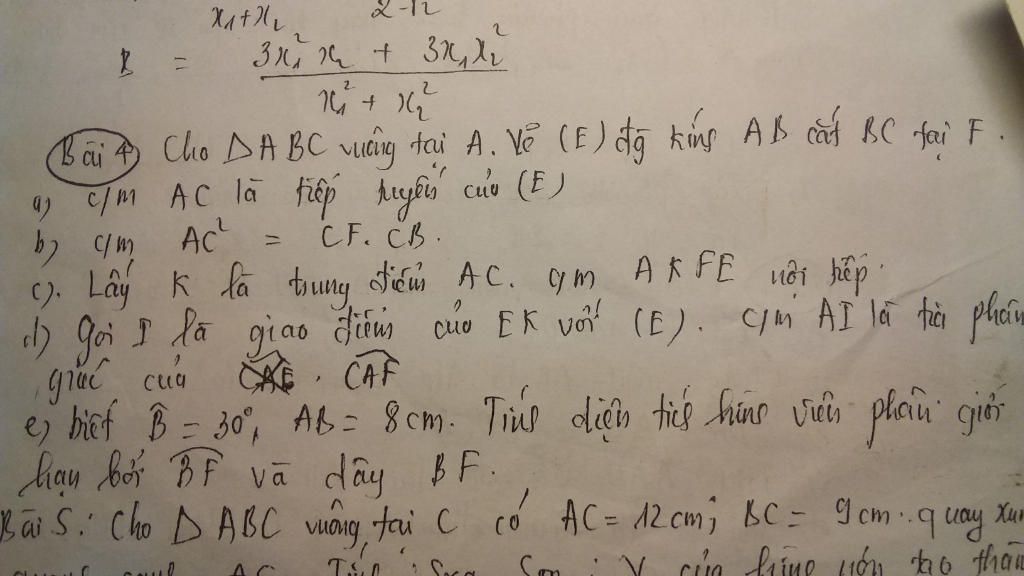 x₁+x₂
B = (3x₁² x₂ + 3x₁x₂²) / (x₁² + x₂²)
Bài 4 Cho ΔABC vuông tại A. Vẽ (E) đg kính AB cắt BC tại F.
a) c/m AC là tiếp tuyến của (E)
b) c/m AC² = CF. CB.
c). Lấy K là trung điểm AC. c/m AKFE nội tiếp.
d) Gọi I là giao điểm của EK với (E). C/m AI là tia phân
giác của CAF
e) biết B̂ = 30°, AB = 8cm. Tính diện tích hình viên phân giới
hạn bởi BF và dây BF.
Bài 5: Cho ΔABC vuông tại C có AC = 12cm; BC = 9cm. quay xun
AC Tính: V của hình nón tạo thàn